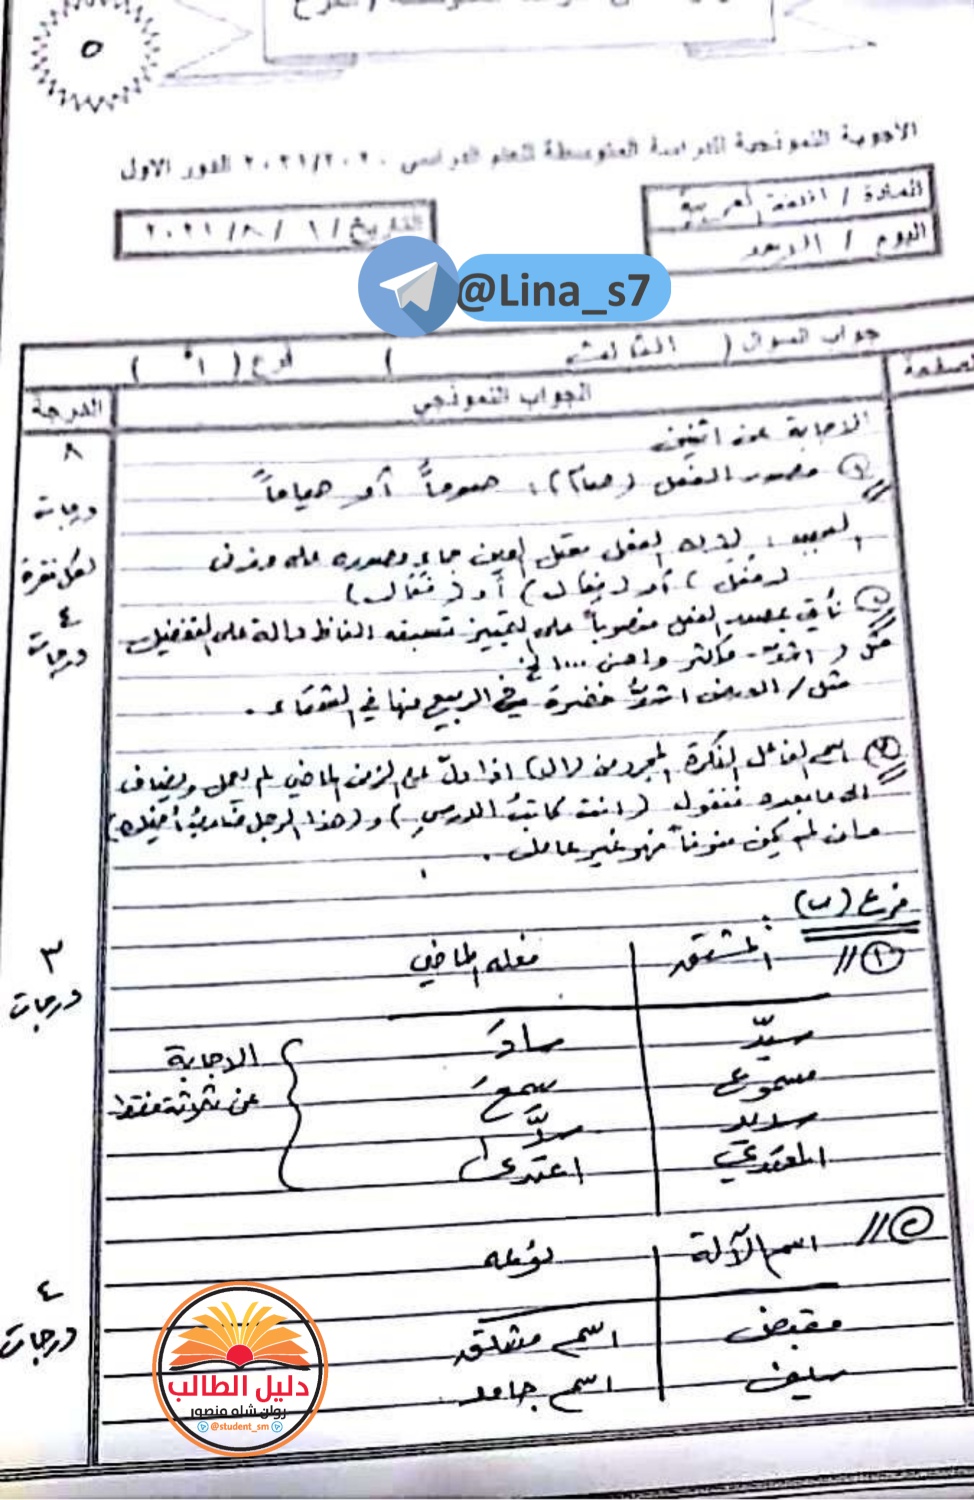 ٥
الأجوبة النموذجية للدراسة المتوسطة للعام الدراسي ٢٠٢٠/٢٠٢١ الدور الاول
المادة / اللغة العربية
اليوم / الاحد
التاريخ / ١ / ٨ / ٢٠٢١
@Lina_s7
جواب السؤال ( الثالث ) فرع ( أ )
الصفحة
الجواب النموذجي
الدرجة
الاجابة عن اثنين
٨ درجات لكل نقرة ٤ درجات
١ مصدر الفعل (صام) : صوماً أو صياماً
السبب : لأن الفعل معتل العين جاء مصدره على وزن
(فعل) أو (فِعال) أو (فُعَال)
٢ نأتي بمصدر الفعل منصوباً على التمييز تسبقه الفاظ دالة على التفضيل
مثل ( اشد - واكثر واحسن .... الخ
مثل / العين اشدُّ خضرة في الربيع منها في الشتاء .
٣ اسم الفاعل النكرة المجرد من (ال) اذا دلّ على الزمن الماضي لم يعمل ويضاف
الى مابعده فنقول (انت كاتبُ الدرسِ) و(هذا الرجل ضاربُ أخيك)
وان لم يكن منوناً فهو غير عامل .
فرع (ب) :
١ // المشتق فعله الماضي
٣ درجات
سيّد سادَ
مسموع سمعَ
سديد سدَّ
المعتدي اعتدى
الاجابة
عن ثلاثة فقط
٢ // اسم الآلة نوعه
٤ درجات
مقبض اسم مشتق
سيف اسم جامد
دليل الطالب
روان شاه منصور
@student_sm